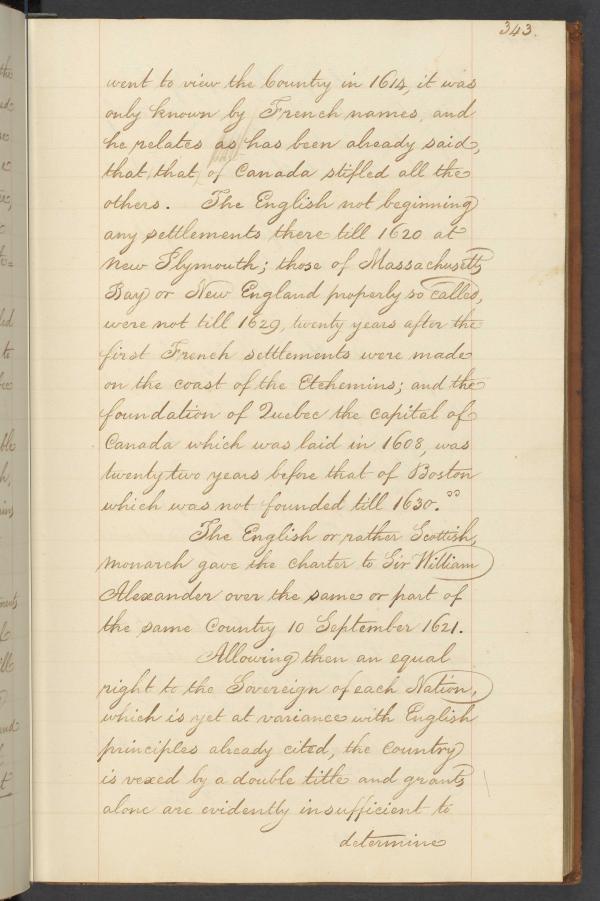 343.
went to view the Country in 1614, it was
only known by French names, and
he relates as has been already said,
that, that of Canada stifled all the
others. The English not beginning
any settlements there till 1620 at
New Plymouth; those of Massachusetts
Bay or New England properly so called,
were not till 1629, twenty years after the
first French settlements were made
on the coast of the Etchemins; and the
foundation of Quebec the capital of
Canada which was laid in 1608, was
twenty two years before that of Boston
which was not founded till 1630."
The English or rather Scottish,
monarch gave the charter to Sir William
Alexander over the same or part of
the same Country 10 September 1621.
Allowing then an equal
right to the Sovereign of each Nation,
which is yet at variance with English
principles already cited, the country
is vexed by a double title and grants
alone are evidently insufficient to
determine